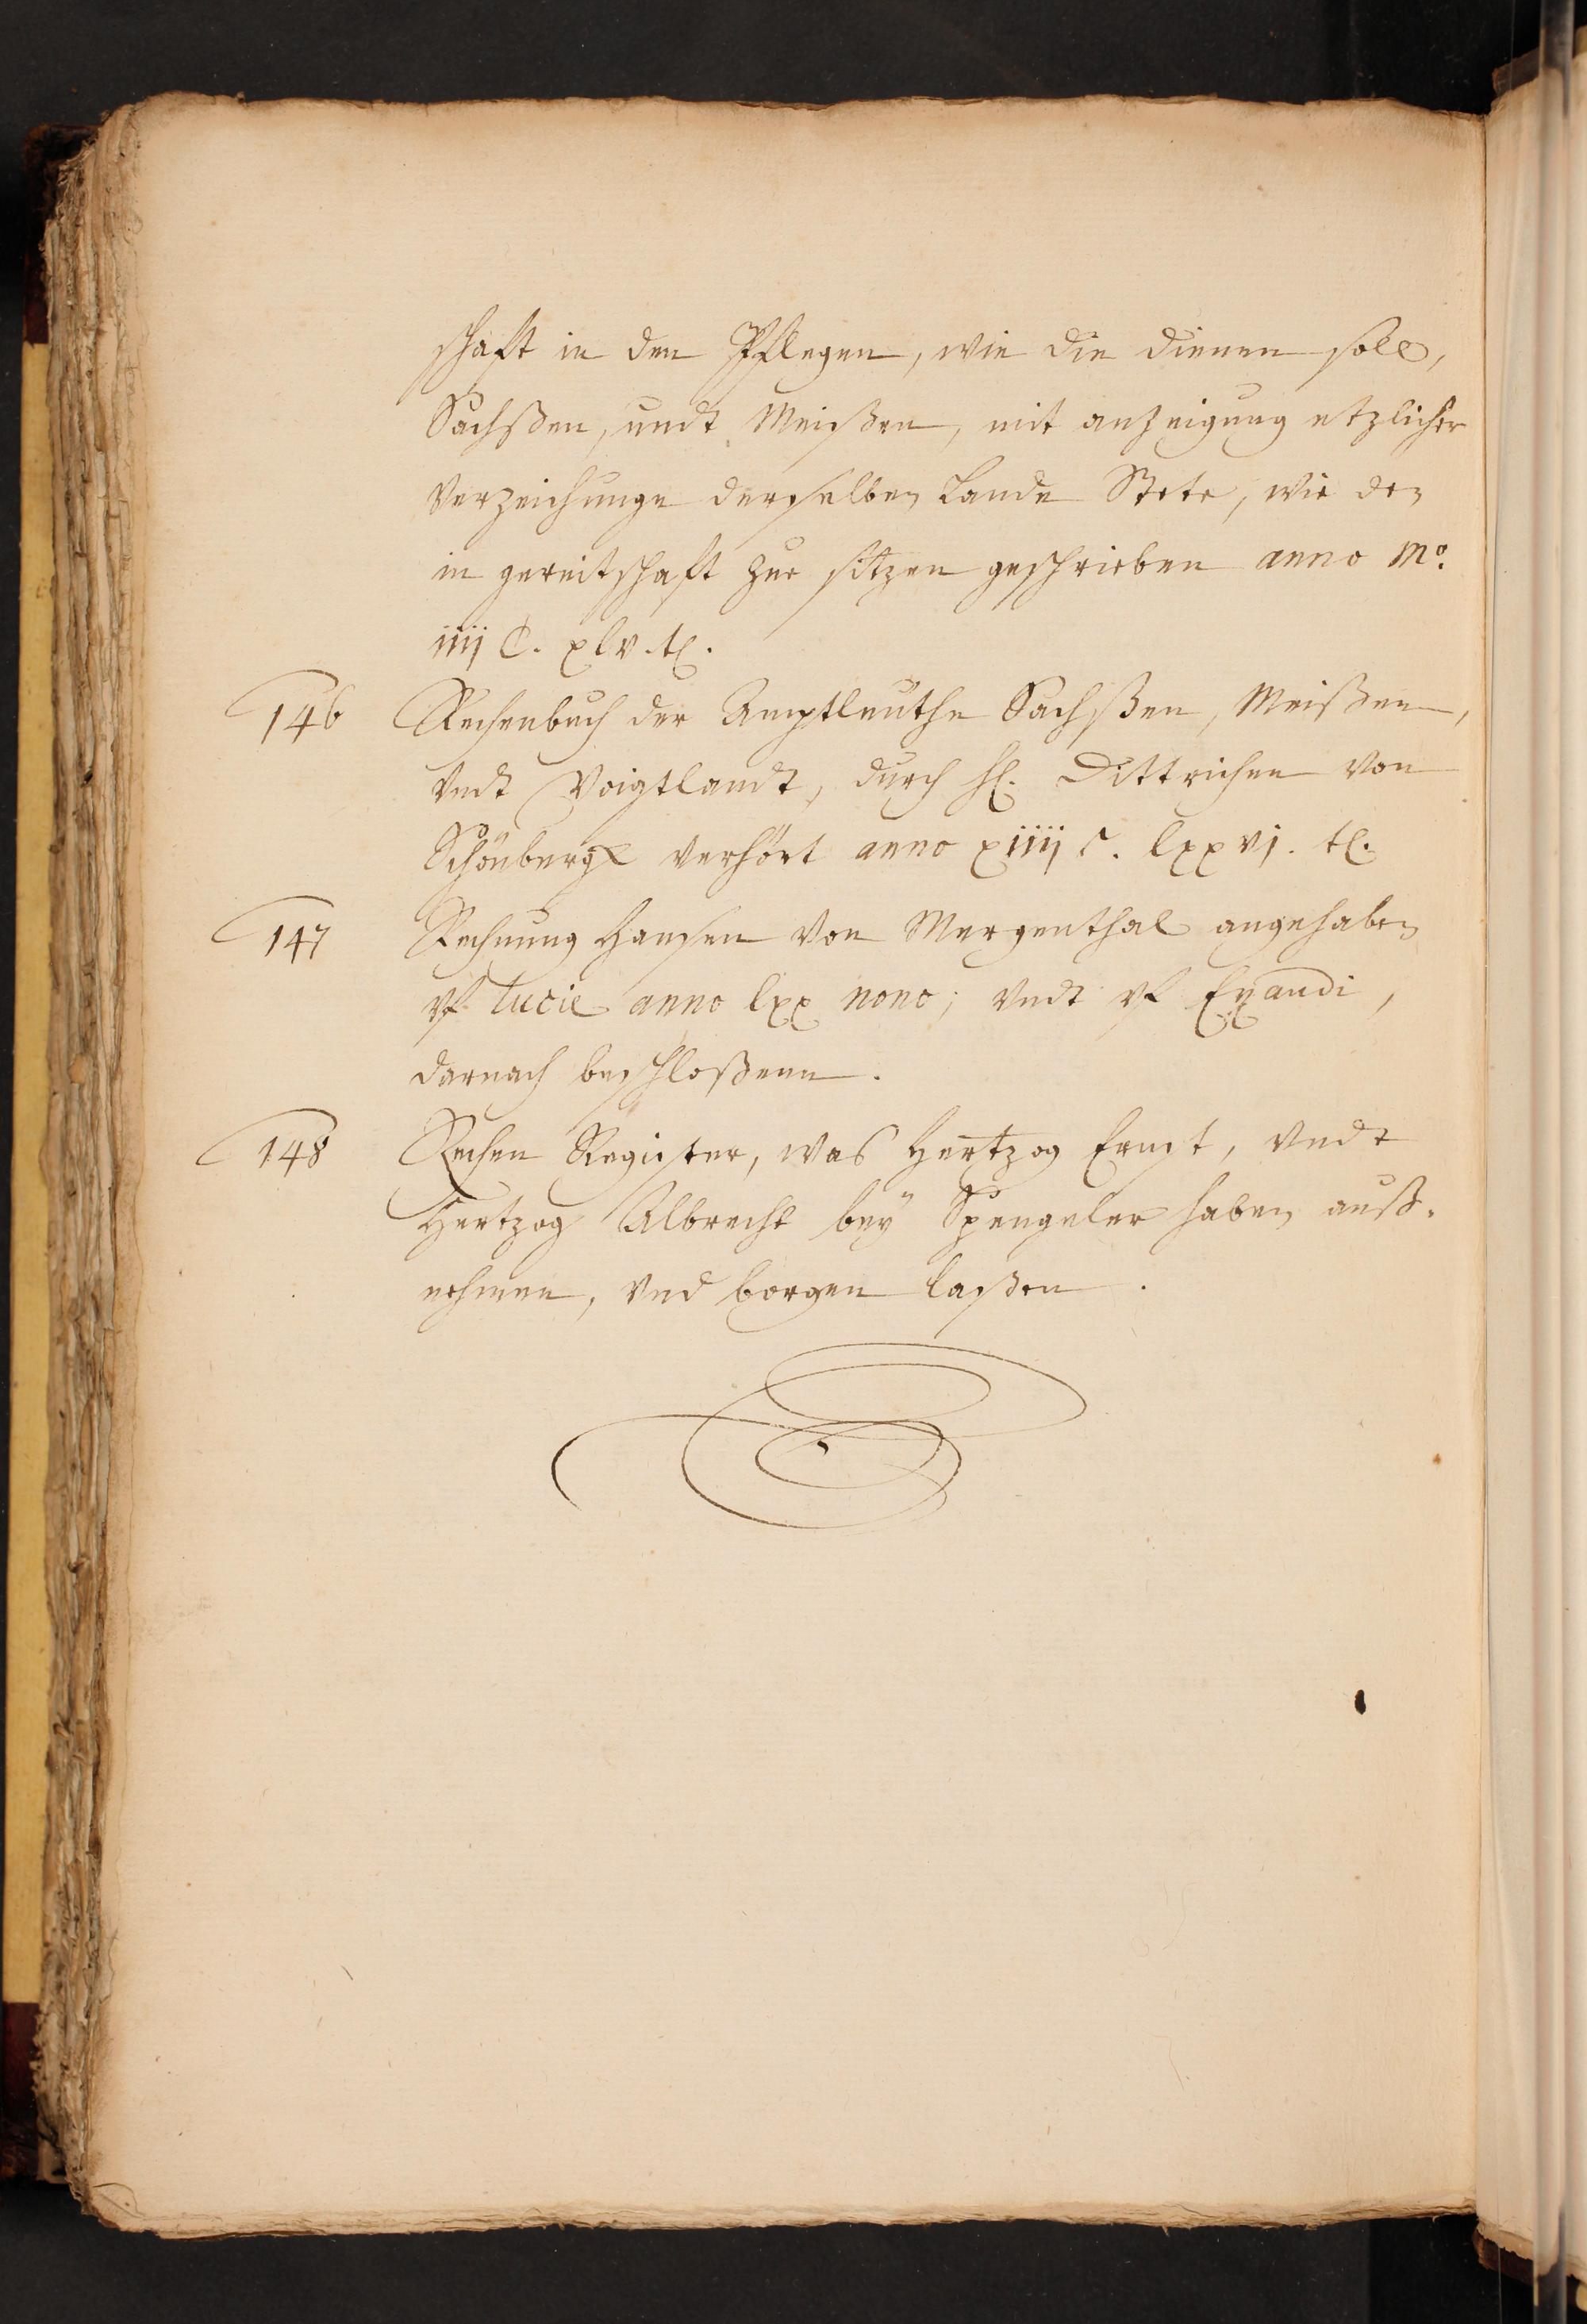 schafft in den Pflegen, wie die dienen soll,
Sachßen, undt Meißen, mit anzeigung etzlicher
Verzeichunge derselben Lande Stete, wie der
in gereitschafft zue sitzen geschrieben anno mº.
iiij C. xlv. tℓ.
146 Rechenbuch der Amptleuthe Sachßen, Meißen,
Vndt Voigtlandt, durch H. Dittrichen von
Schönbergk verhört anno xiiij c. lxxvj. tℓ.
147 Rechnung Hansen von Mergenthal angehaben
vf Lucie anno lxx nono; Vndt vf Exaudi,
darnach beschloßenn.
148 Rechen Register, was Hertzog Ernst, Vndt
Hertzog Albrecht beÿ Spengeler haben auß-
nehmen, Vnd borgen laßen.